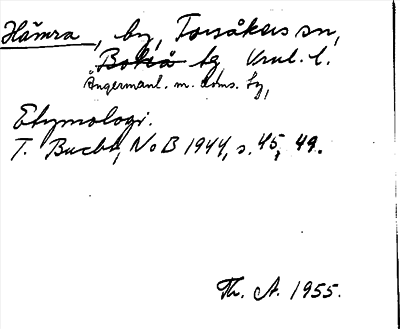 Hämra, by, Torsåkers sn,
Boteå tg Vnl. l.
Ångermanl. m. doms. tg,
Etymologi.
T. Bucht, NoB 1944, s. 45, 49.
Th. A. 1955.